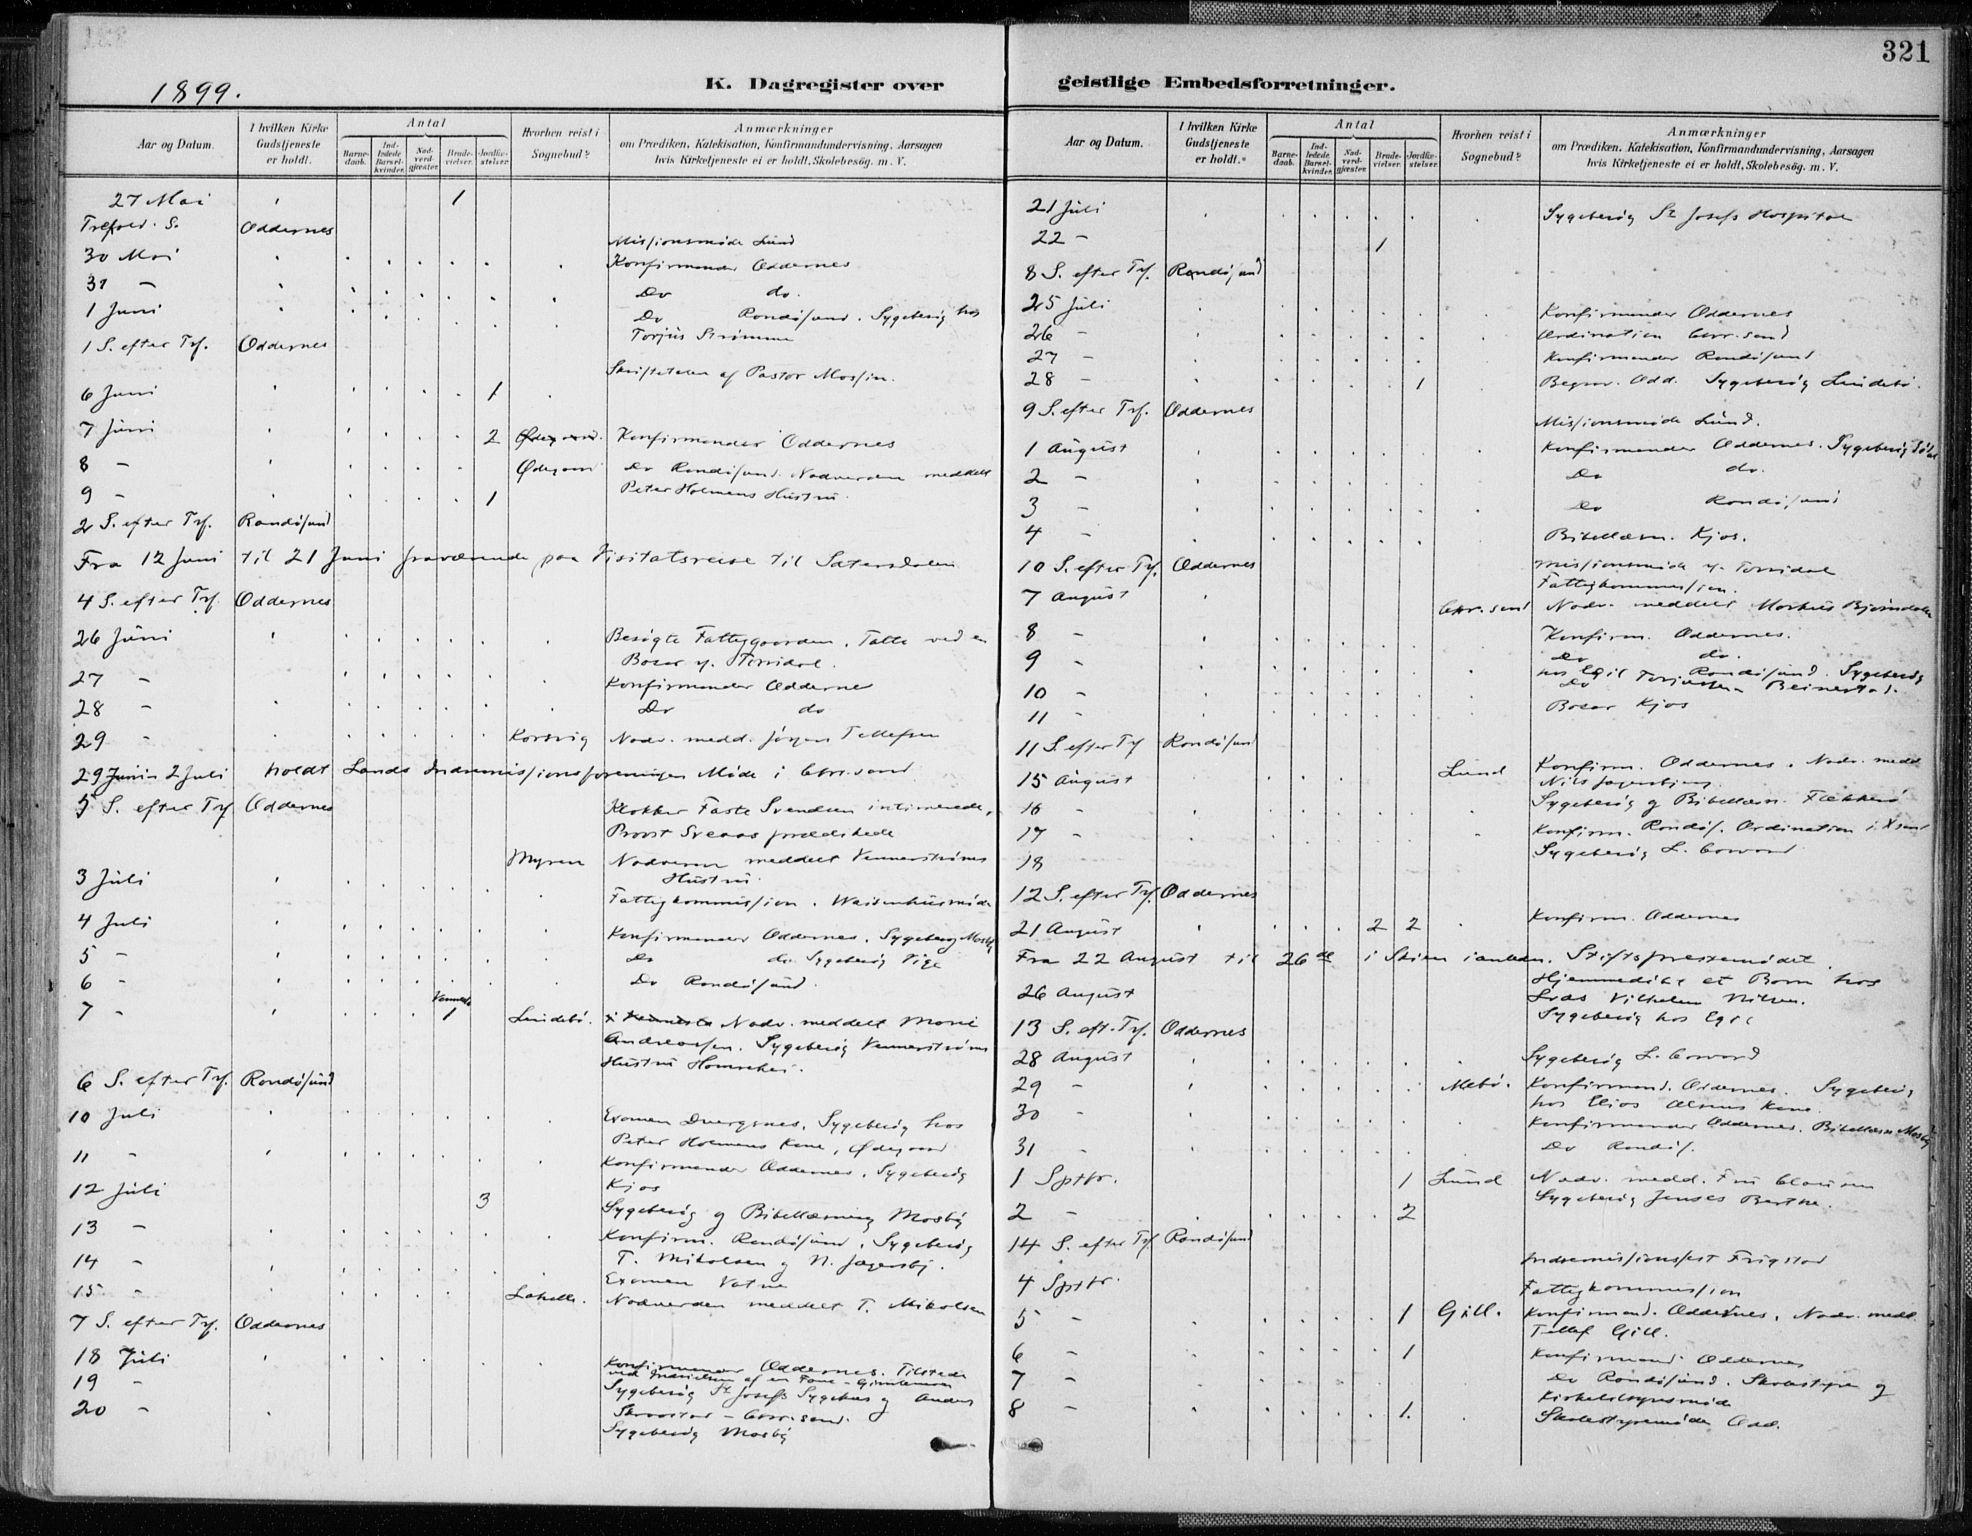 321
1899.
K. Dagregister over geistlige Embedsforretninger.
Aar og Datum.
I hvilken Kirke Gudstjeneste er holdt.
Antal
Barne-daab.
Ind-ledede Barsel-kvinder.
Nad-verd-gjæster.
Brude-vielser.
Jordfæ-stelser.
Hvorhen reist i Sognebud?
Anmærkninger
om Prædiken, Katekisation, Konfirmandundervisning, Aarsagen
hvis Kirketjeneste ei er holdt, Skolebesög. m. V.
27 Mai 1
Trefold. S. Oddernes
Missionsmøde Lund
30 Mai Konfirmander Oddernes
31 - Do do.
1 Juni Do Randøsund. Sygebesøg hos
Torjus Strømme
1 S. efter Trf. Oddernes
Skriftetalen af Pastor
6 Juni 1
7 Juni 2 Konfirmander Oddernes
8 - Ødegaard Do Randøsund. Nadverden meddelt
Peter Holmens Hustru.
9 - 1
2 S. efter Trf. Randøsund
Fra 12 Juni til 21 Juni fraværende paa Visitatsreise til Sætersdalen
4 S. efter Trf. Oddernes
26 Juni Besøgte Fattiggaarden. Talte ved en
Basar
27 - Konfirmander Oddernes
28 - Do do
29 - Korsvig Nadv. medd. Jørgen Tellefsen
29 Juni - 2 Juli holdt Lands Indremissionsforeningen Møde i Chr.sand
5 S. efter Trf. Oddernes Klokker Faste Svendsen intimerede,
Provst Sveaas prædikede
Myren Nadveren meddelt Vennerstrøms
Hustru.
3 Juli Fattigkommission. Waisenhusmøde
4 Juli Konfirmander Oddernes. Sygebesøg Mosby
5 - Do do. Sygebesøg
6 - Do Randøsund.
7 - Vennesla 1 Lindebø. Nadv. meddelt
Andreassen. Sygebesøg Vennerstrøms
Hustru
6 S. efter Trf. Randøsund
10 Juli Examen Dvergsnes. Sygebesøg hos
Peter Holmens Kone, Ødegaard
11 - Konfirmander Oddernes. Sygebesøg
Kjos
12 Juli 3 Sygebesøg og Bibellæsning Mosby
13 - Konfirm. Randøsund. Sygebesøg
T. Mikalsen og N. Jægersbj.
14 - Examen Vatne
15 - Nadverden meddelt T. Mikalsen
7 S. efter Trf. Oddernes
18 Juli Konfirmander Oddernes. Tilstede
ved Indvielsen af en Fane - Gimlemoen
19 - Sygebesøg St Josefs Sygehus og Anders
- Chr.sand.
20 - Sygebesøg Mosby
Aar og Datum.
I hvilken Kirke Gudstjeneste er holdt.
Antal
Barne-daab.
Ind-ledede Barsel-kvinder.
Nad-verd-gjæster.
Brude-vielser.
Jordfæ-stelser.
Hvorhen reist i Sognebud?
Anmærkninger
om Prædiken, Katekisation, Konfirmandundervisning, Aarsagen
hvis Kirketjeneste ei er holdt, Skolebesög. m. V.
21 Juli Sygebesøg St Josefs Hospital
22 - 1
8 S. efter Trf. Randøsund
25 Juli Konfirmander Oddernes
26 - Ordination Chr.sand
27 - Konfirmander Randøsund
28 - 1 Begrav. Odd. Sygebesøg Lindebø.
9 S. efter Trf. Oddernes
Missionsmøde Lund.
1 August Konfirmander Oddernes. Sygebesøg
2 - Do do.
3 - Do Randøsund
4 - Bibellæsn. Kjos.
10 S. efter Trf. Oddernes
Missionsmøde
7 August Fattigkommission.
Chr.sand Nadv. meddelt Markus Bjørndalen
8 - Konfirm. Oddernes.
9 - Do do.
10 - Do Randøsund. Sygebesøg
hos Torjussen Beinestad.
11 - Basar Kjos
11 S. efter Trf Randøsund
15 August Lund Konfirm. Oddernes. Nadv. medd
Nils Jægersbj
16 - Sygebesøg og Bibellæsn. Flekkerø
17 - Konfirm. Randøs. Ordination i Xsand
18 Sygebesøg L.
12 S. efter Trf. Oddernes
21 August 2 2 Konfirm. Oddernes
Fra 22 August til 26de i Skien Stiftsprestemødet
26 August Hjemmedøbt et Barn hos
Vilhelm Nilsen.
Sygebesøg hos
13 S. eft. Trf. Oddernes
28 August Sygebesøg L.
29 - Mebø. Konfirmand. Oddernes. Sygebesøg
hos Elias Olsens Kone.
30 - Konfirmander Oddernes. Bibellæsn Mosby
31 - Do Randøs.
1 Sptbr. 1 Lund Nadv. medd. Fru
Sygebesøg
2 - 2
14 S. efter Trf Randøsund
Indremissionsfest Frigstad
4 Sptbr. Fattigkommission
5 - 1 Gill. Konfirmand. Oddernes. Nadv. medd.
Tellef Gill.
6 - 1 Konfirmand. Oddernes
7 - Do Randøsund. Skolestyre og
Kirketilsynsmøde
8 - 1. Skolestyremøde Odd.